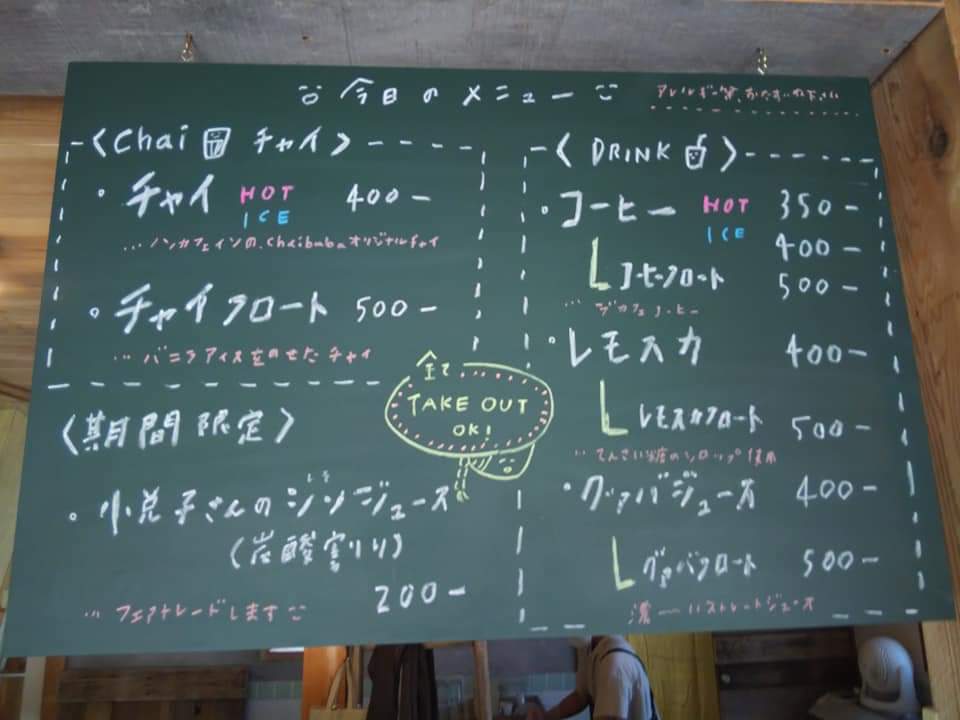 今日のメニュー
アレルギー等、おたずね下さい
〈Chai チャイ〉
・チャイ HOT ICE 400-
…ノンカフェインの、chaibabaオリジナルチャイ
・チャイフロート 500-
…バニラアイスをのせたチャイ
〈期間限定〉
・小兑子さんのジンジュース
(炭酸割り)
200-
…フェアトレードします
全て
TAKE OUT
OK!
〈DRINK〉
・コーヒー HOT 350-
ICE 400-
コーヒーフロート 500-
…デカフェコーヒー
・レモスカ 400-
レモスカフロート 500-
…てんさい糖のシロップ使用
・グァバジュース 400-
グァバフロート 500-
濃ーいストレートジュース